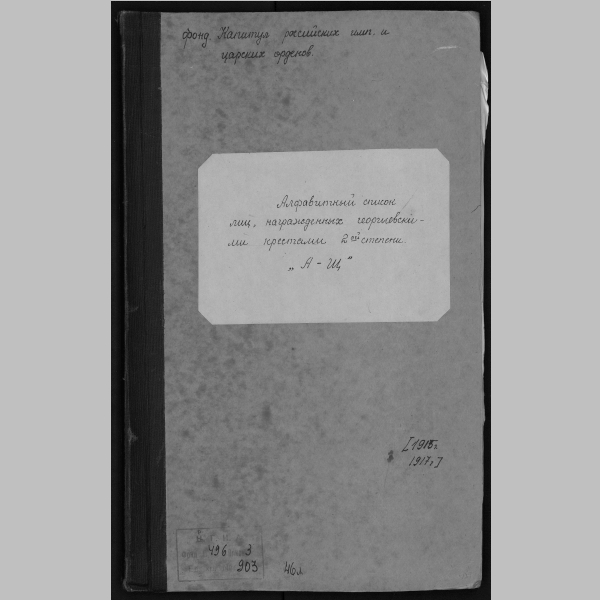 фонд. Капитул российских имп. и
царских орденов.
Алфавитный список
лиц, награжденных георгиевски-
ми крестами 2ой степени
„А - Щ"
[1915г.
1917г]
496 3
903 46л